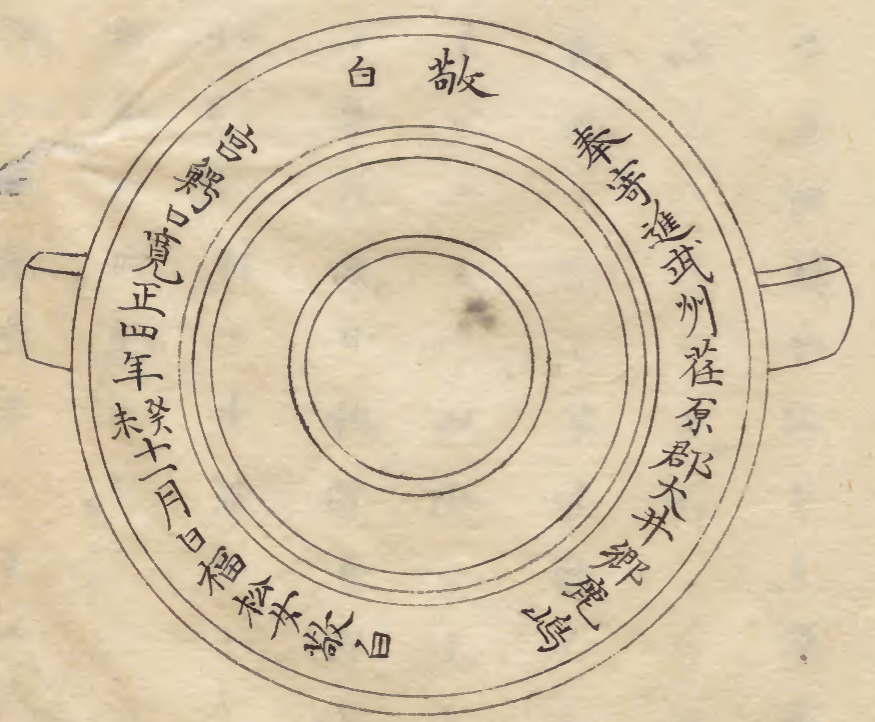 敬白
奉寄進武州荏原郡大井郷鹿嶋
宮鰐口寛正四年癸未十一月日福松女敬白